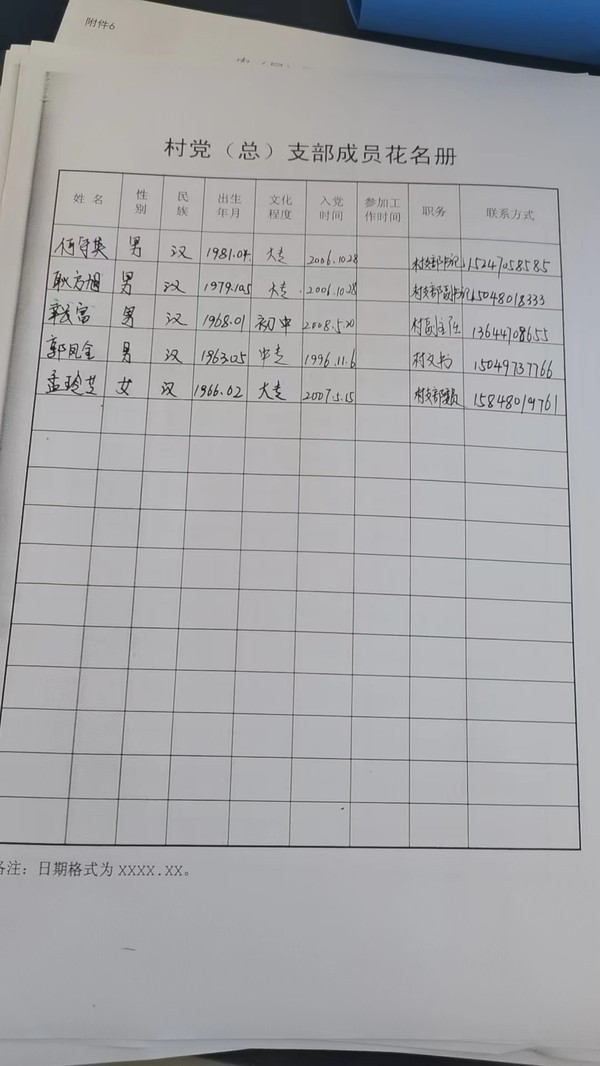 附件6
村党（总）支部成员花名册
姓名 性别 民族 出生年月 文化程度 入党时间 参加工作时间 职务 联系方式
何守英 男 汉 1981.04 大专 2006.10.28 村支部书记 15247058585
耿方旭 男 汉 1979.105 大专 2006.10.28 村支部副书记 15048018333
男 汉 1968.01 初中 2008.5.20 村副主任 13644708655
郭凤金 男 汉 1963.05 中专 1996.11.6 村文书 15049737766
孟玲芝 女 汉 1966.02 大专 2007.5.15 村支部委员 15848019761
备注：日期格式为XXXX.XX。